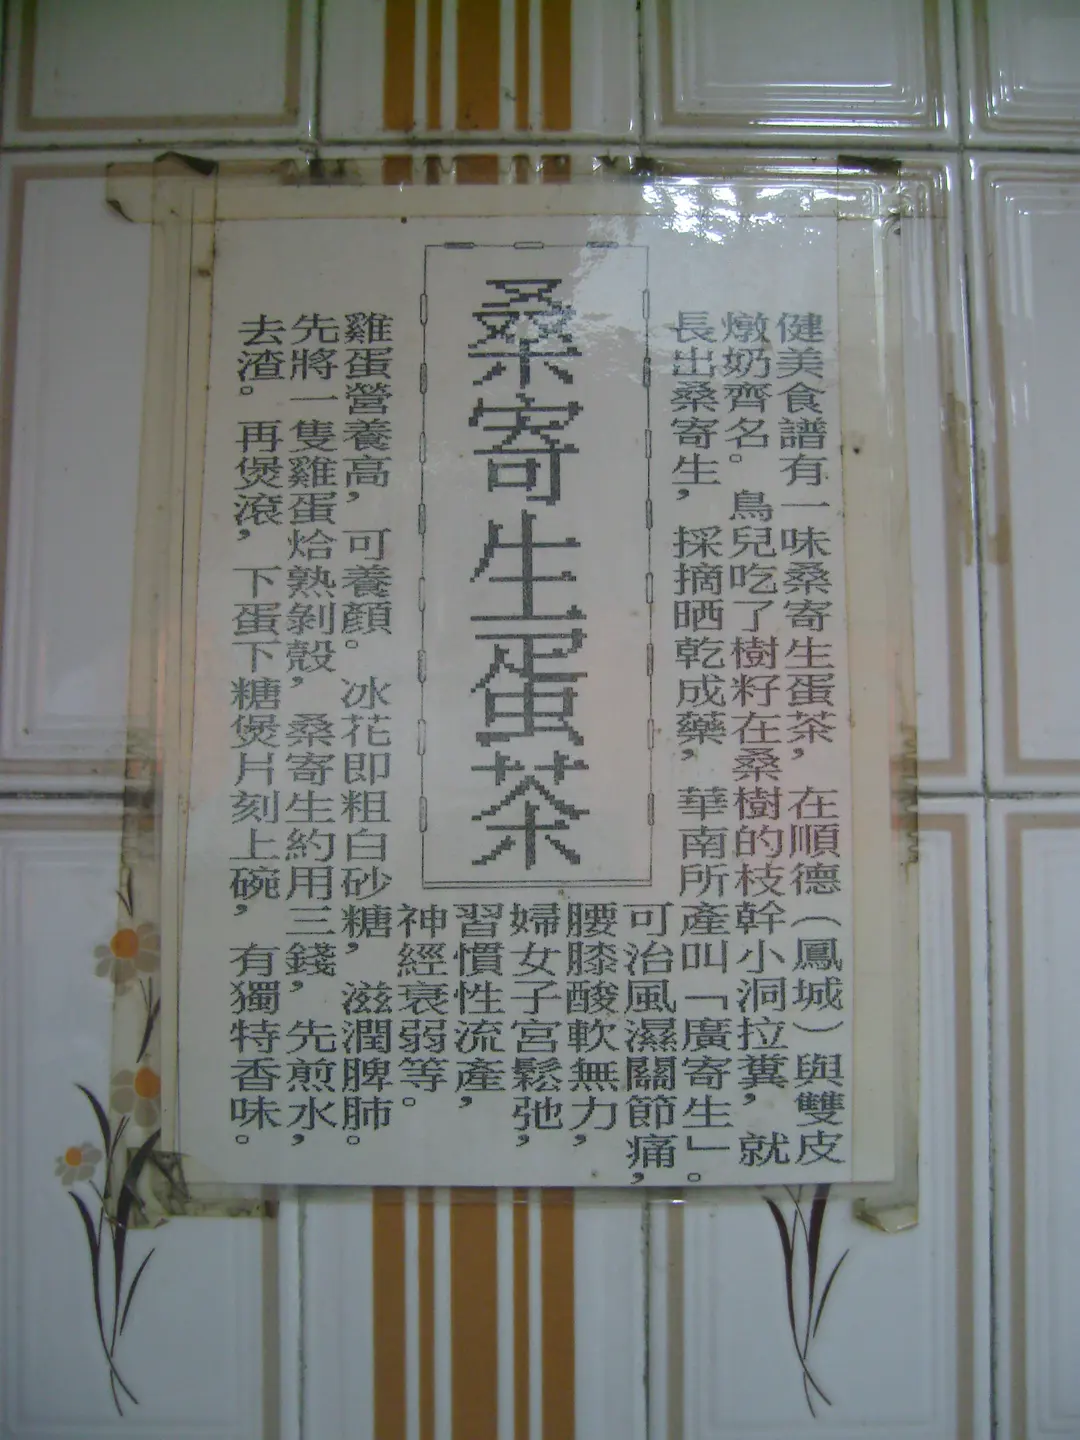 桑寄生蛋茶
健美食譜有一味桑寄生蛋茶，在順德（鳳城）與雙皮
燉奶齊名。鳥兒吃了樹籽在桑樹的枝幹小洞拉糞，就
長出桑寄生，採摘晒乾成藥，華南所產叫「廣寄生」。
可治風濕關節痛，
腰膝酸軟無力，
婦女子宮鬆弛，
習慣性流產，
神經衰弱等。
雞蛋營養高，可養顏。冰花即粗白砂糖，滋潤脾肺。
先將一隻雞蛋烚熟剝殼，桑寄生約用三錢，先煎水，
去渣。再煲滾，下蛋下糖煲片刻上碗，有獨特香味。